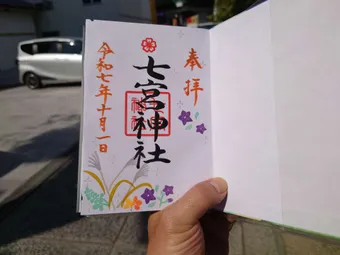 奉拝
七宮神社
令和七年十月一日